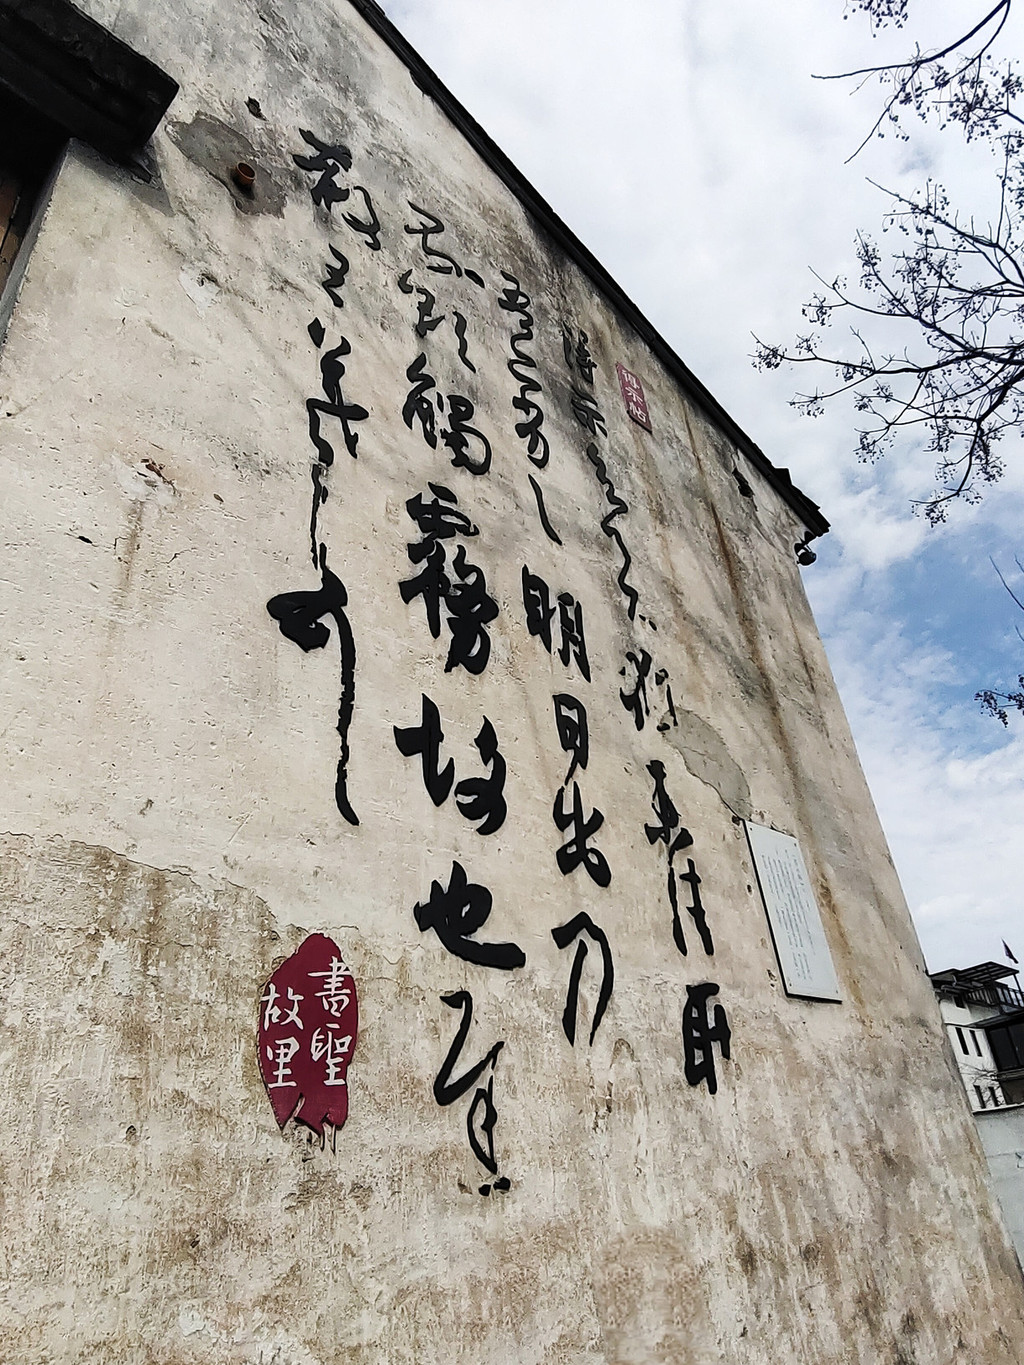 得示帖
得示知足下猶未佳耿
耿吾亦劣劣明日出乃
行不欲觸霧故也遲
散王羲之頓首
書聖
故里